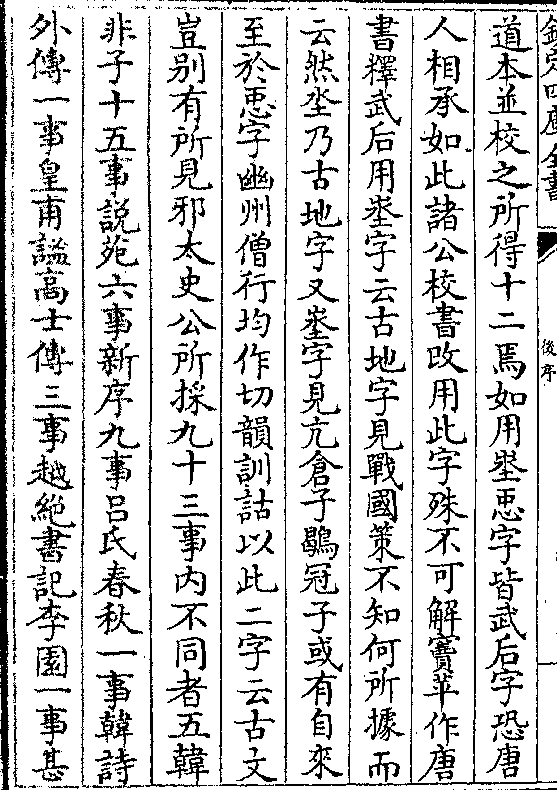 欽定四庫全書
後序
道本並校之所得十二焉如用埊𢘑字皆武后字恐唐
人相承如此諸公校書改用此字殊不可解竇苹作唐
書釋武后用埊字云古地字見戰國策不知何所據而
云然坔乃古地字又埊字見亢倉子鶡冠子或有自來
至於𢘑字幽州僧行均作切韻訓詁以此二字云古文
豈别有所見邪太史公所採九十三事内不同者五韓
非子十五事説苑六事新序九事吕氏春秋一事韓詩
外傳一事皇甫謐高士傳三事越絶書記李園一事甚